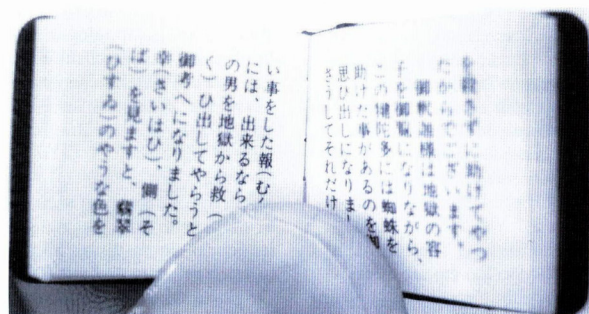 を殺さずに助けてやつ
たからでございます。
御釈迦様は地獄の容
子を御覧になりながら、
この犍陀多には蜘蛛を
助けた事があるのを御
思ひ出しになりまし
さうしてそれだけ
い事をした報(むく
には、出来るなら
の男を地獄から救(
く)ひ出してやらうと
御考へになりました。
幸(さいはひ)、側(そ
ば)を見ますと、翡翠
(ひすゐ)のやうな色を